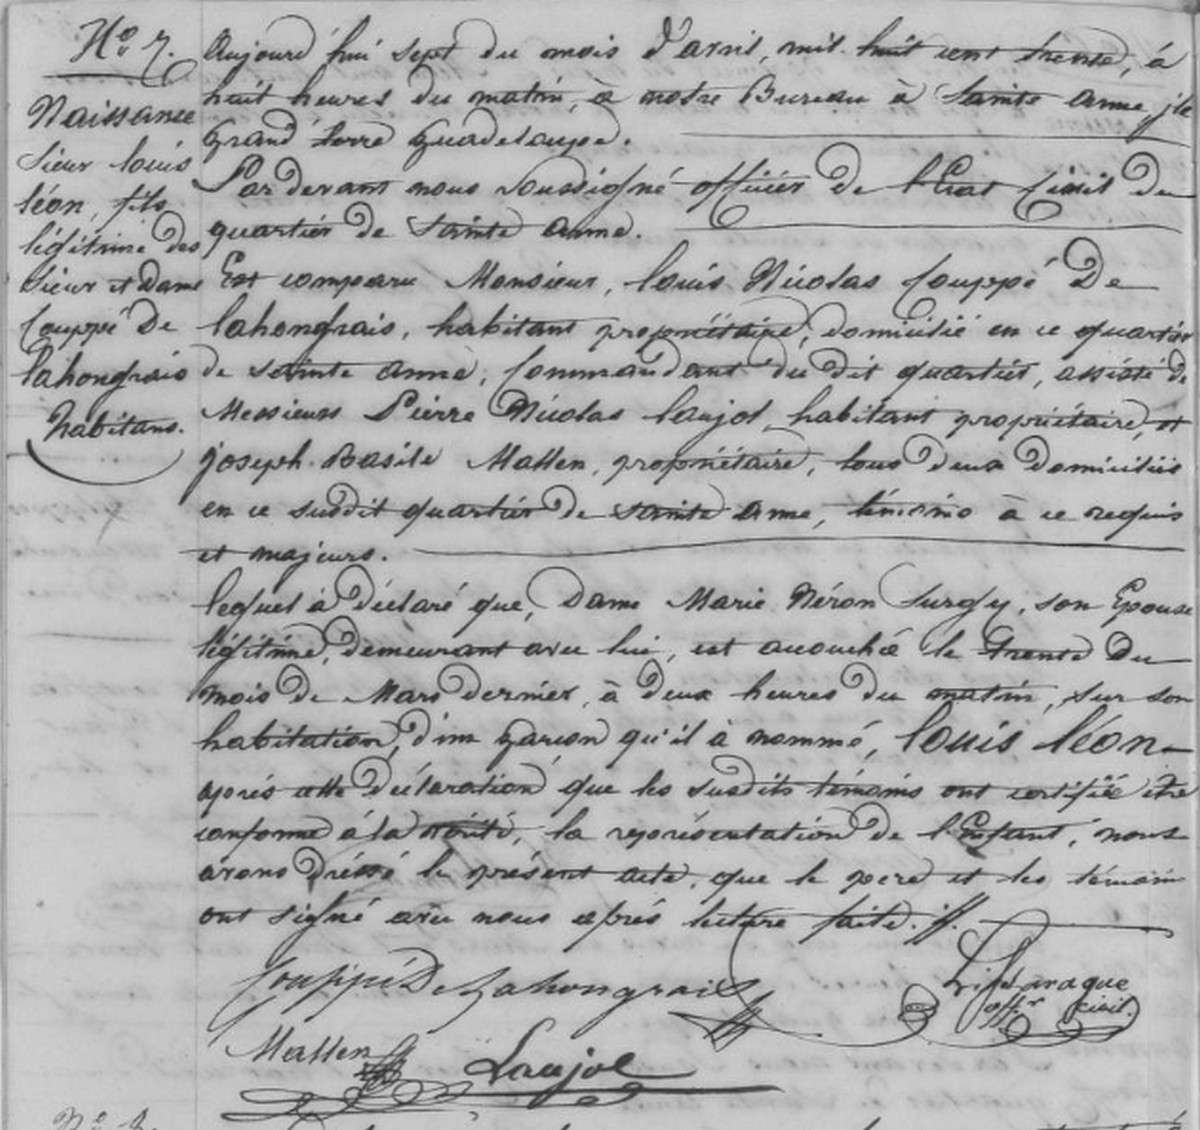 No 7.
Naissance
Sieur louis
léon, fils
légitime des
Sieur et Dame
Couppé De
lahongrais
habitans.
Aujourd'hui sept du mois d'avril, mil huit cent trente, à
huit heures du matin, à notre Bureau à Sainte anne, jle
Grand terre Guadeloupe.
Pardevant nous soussigné officier de l'Etat Civil du
quartier de Sainte anne.
Est comparu Monsieur, louis Nicolas Couppé De
lahongrais, habitant propriétaire, domicilié en ce quartier
de Sainte anne, Commandant du dit quartier, assisté de
Messieurs Pierre Nicolas laujol, habitant propriétaire, et
joseph Basile Mallen, propriétaire, tous deux domiciliés
en ce susdit quartier de Sainte anne, témoins à ce requis
et majeurs.
lequel à déclaré que, Dame Marie Néron Surgy, son Epouse
légitime, demeurant avec lui, est accouchée le trente du
mois de Mars dernier, à deux heures du matin, sur son
habitation, d'un garcon qu'il à nommé, louis léon
après cette déclaration que les susdits témoins ont certifié être
conforme à la vérité, la représentation de l'Enfant, nous
avons dréssé le présent acte, que le pere et les témoins
ont signé avec nous après lecture faite. //.
Couppé De Lahongrais
Lafaraque
offr civil.
Mallen
Laujol
No 8.